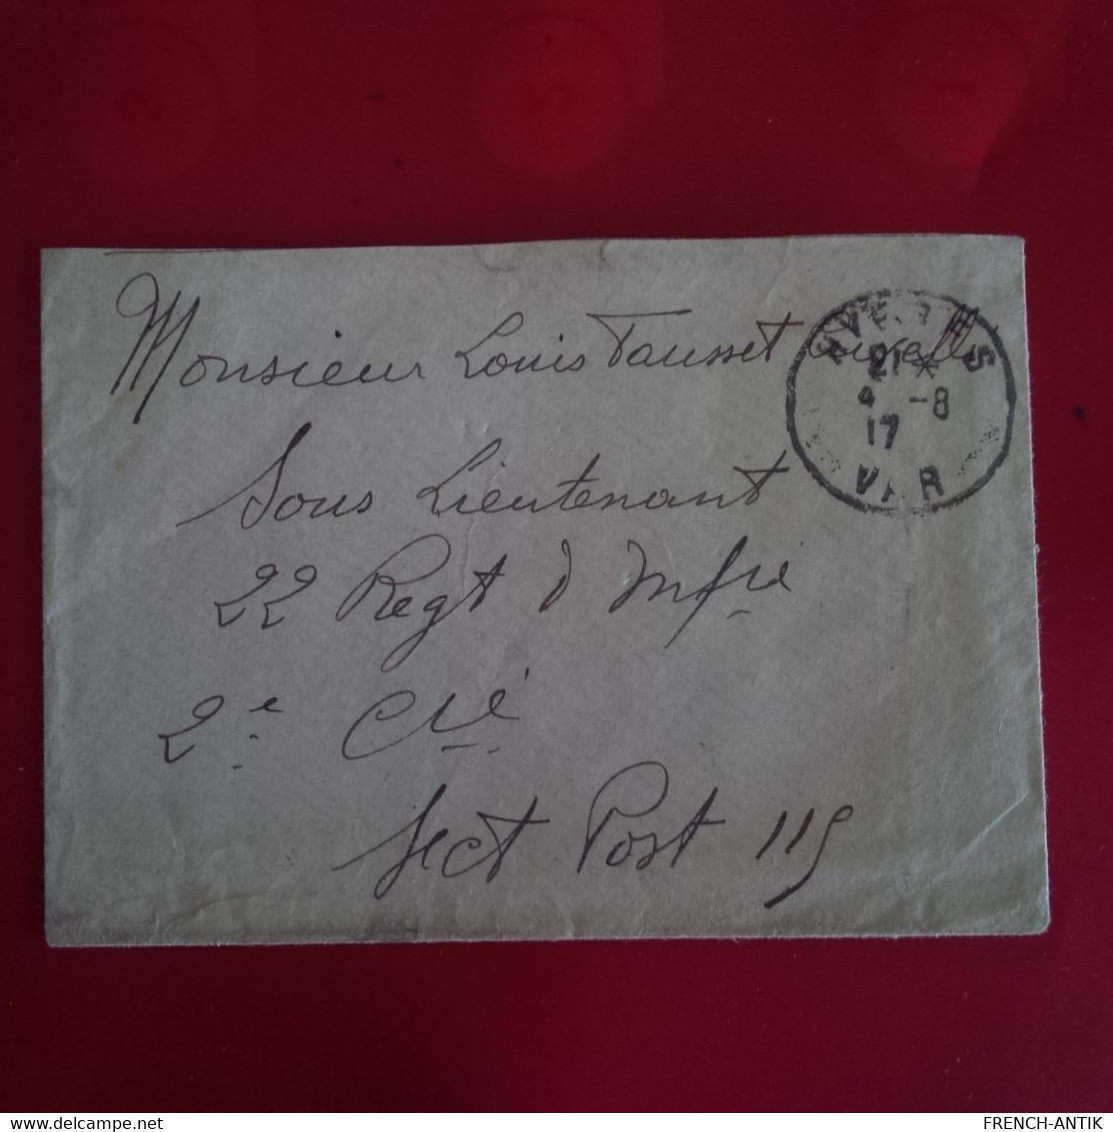 Monsieur Louis Fausset
HYERES
21 *
4 -8
17
VAR
Sous Lieutenant
22 Regt d Infie
2e Cie
Sect Post 115
www.delcampe.net
FRENCH-ANTIK